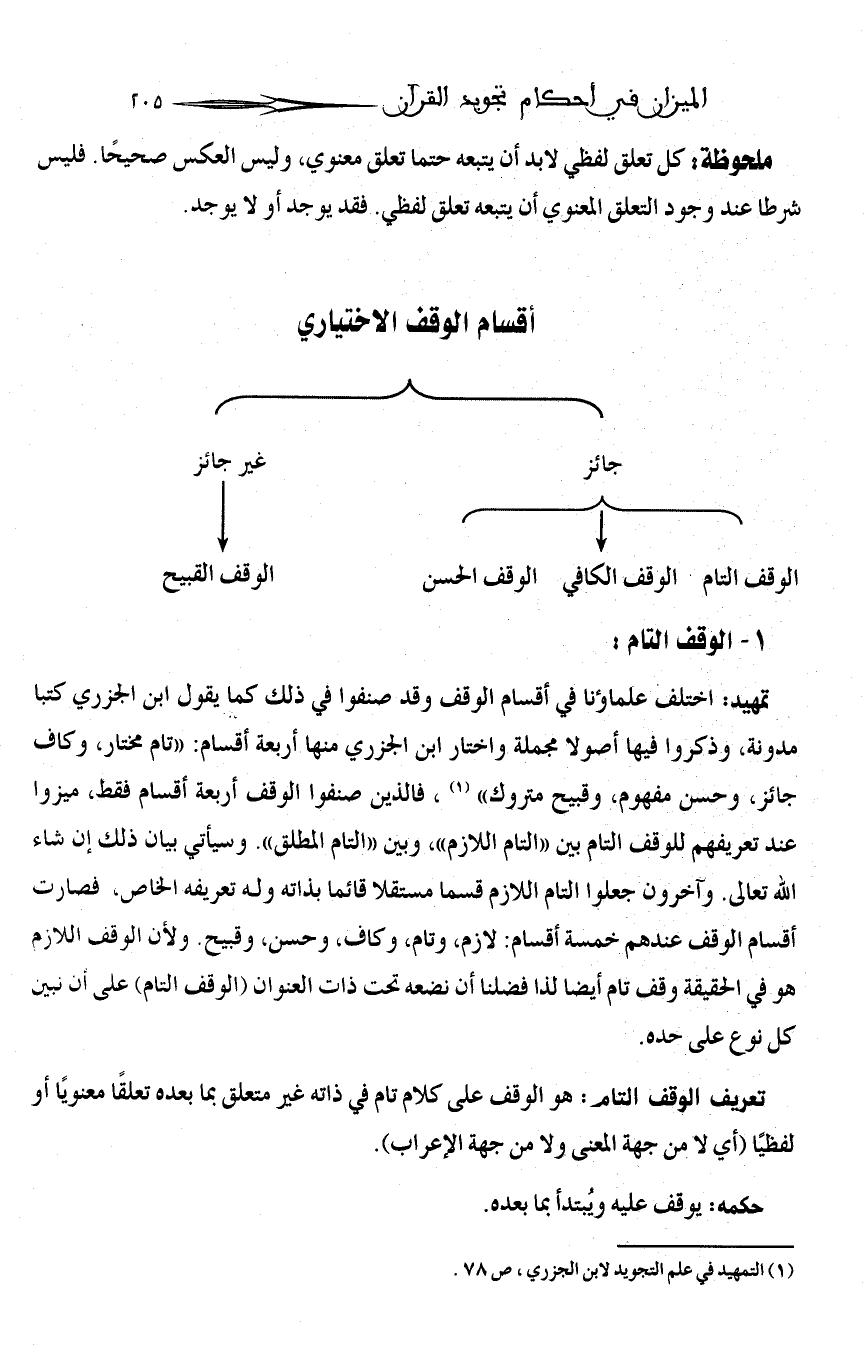 الميزان في أحكام تجويد القرآن ٢٠٥
ملحوظة: كل تعلق لفظي لابد أن يتبعه حتما تعلق معنوي، وليس العكس صحيحًا. فليس
شرطا عند وجود التعلق المعنوي أن يتبعه تعلق لفظي. فقد يوجد أو لا يوجد.
أقسام الوقف الاختياري
جائز غير جائز
الوقف التام الوقف الكافي الوقف الحسن الوقف القبيح
١- الوقف التام :
تمهيد: اختلف علماؤنا في أقسام الوقف وقد صنفوا في ذلك كما يقول ابن الجزري كتبا
مدونة، وذكروا فيها أصولا مجملة واختار ابن الجزري منها أربعة أقسام: «تام مختار، وكاف
جائز، وحسن مفهوم، وقبيح متروك» (١) ، فالذين صنفوا الوقف أربعة أقسام فقط، ميزوا
عند تعريفهم للوقف التام بين «التام اللازم»، وبين «التام المطلق». وسيأتي بيان ذلك إن شاء
الله تعالى. وآخرون جعلوا التام اللازم قسما مستقلا قائما بذاته وله تعريفه الخاص، فصارت
أقسام الوقف عندهم خمسة أقسام: لازم، وتام، وكاف، وحسن، وقبيح. ولأن الوقف اللازم
هو في الحقيقة وقف تام أيضا لذا فضلنا أن نضعه تحت ذات العنوان (الوقف التام) على أن نبين
كل نوع على حده.
تعريف الوقف التام: هو الوقف على كلام تام في ذاته غير متعلق بما بعده تعلقًا معنويًا أو
لفظيًا (أي لا من جهة المعنى ولا من جهة الإعراب).
حكمه: يوقف عليه ويُبتدأ بما بعده.
(١) التمهيد في علم التجويد لابن الجزري ، ص ٧٨ .